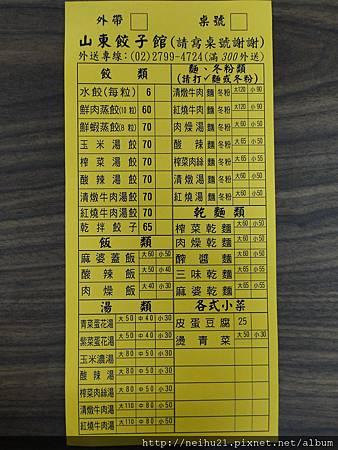 外帶 桌號
山東餃子館(請寫桌號謝謝)
外送專線：(02)2799-4724(滿300外送)
餃類
水餃(每粒) 6
鮮肉蒸餃(10粒) 60
鮮蝦蒸餃(8粒) 70
玉米湯餃 70
榨菜湯餃 70
酸辣湯餃 70
清燉牛肉湯餃 70
紅燒牛肉湯餃 70
乾拌餃子 65
飯類
麻婆蓋飯 大60 小50
酸辣飯 大50 小40
肉燥飯 大40 小30
湯類
青菜蛋花湯 大50 中40 小30
紫菜蛋花湯 大50 中40 小30
玉米濃湯 大50 中40 小30
酸辣湯 大50 中40 小30
榨菜肉絲湯 大50 中40 小30
清燉牛肉湯 大110 中80 小50
紅燒牛肉湯 大110 中80 小50
麵、冬粉類
(請打✓麵或冬粉)
清燉牛肉 麵 冬粉 大120 小90
紅燒牛肉 麵 冬粉 大120 小90
肉燥湯 麵 冬粉 大60 小50
酸辣 麵 冬粉 大65 小55
榨菜肉絲 麵 冬粉 大65 小55
清燉湯 麵 冬粉 大60 小50
紅燒湯 麵 冬粉 大60 小50
乾麵類
榨菜乾麵 大60 小50
肉燥乾麵 大60 小50
醡醬麵 大60 小50
三味乾麵 大65 小55
麻婆乾麵 大60 小50
各式小菜
皮蛋豆腐 25
燙青菜 大50 小30
http://neihu21.pixnet.net/album